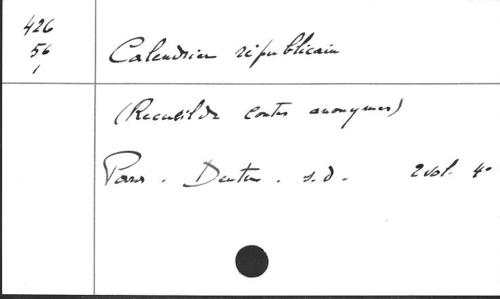 426
56
1
Calendrier républicain
(Recueil de contes anonymes)
Paris. Dentu. s.d. 2 vol. 4°